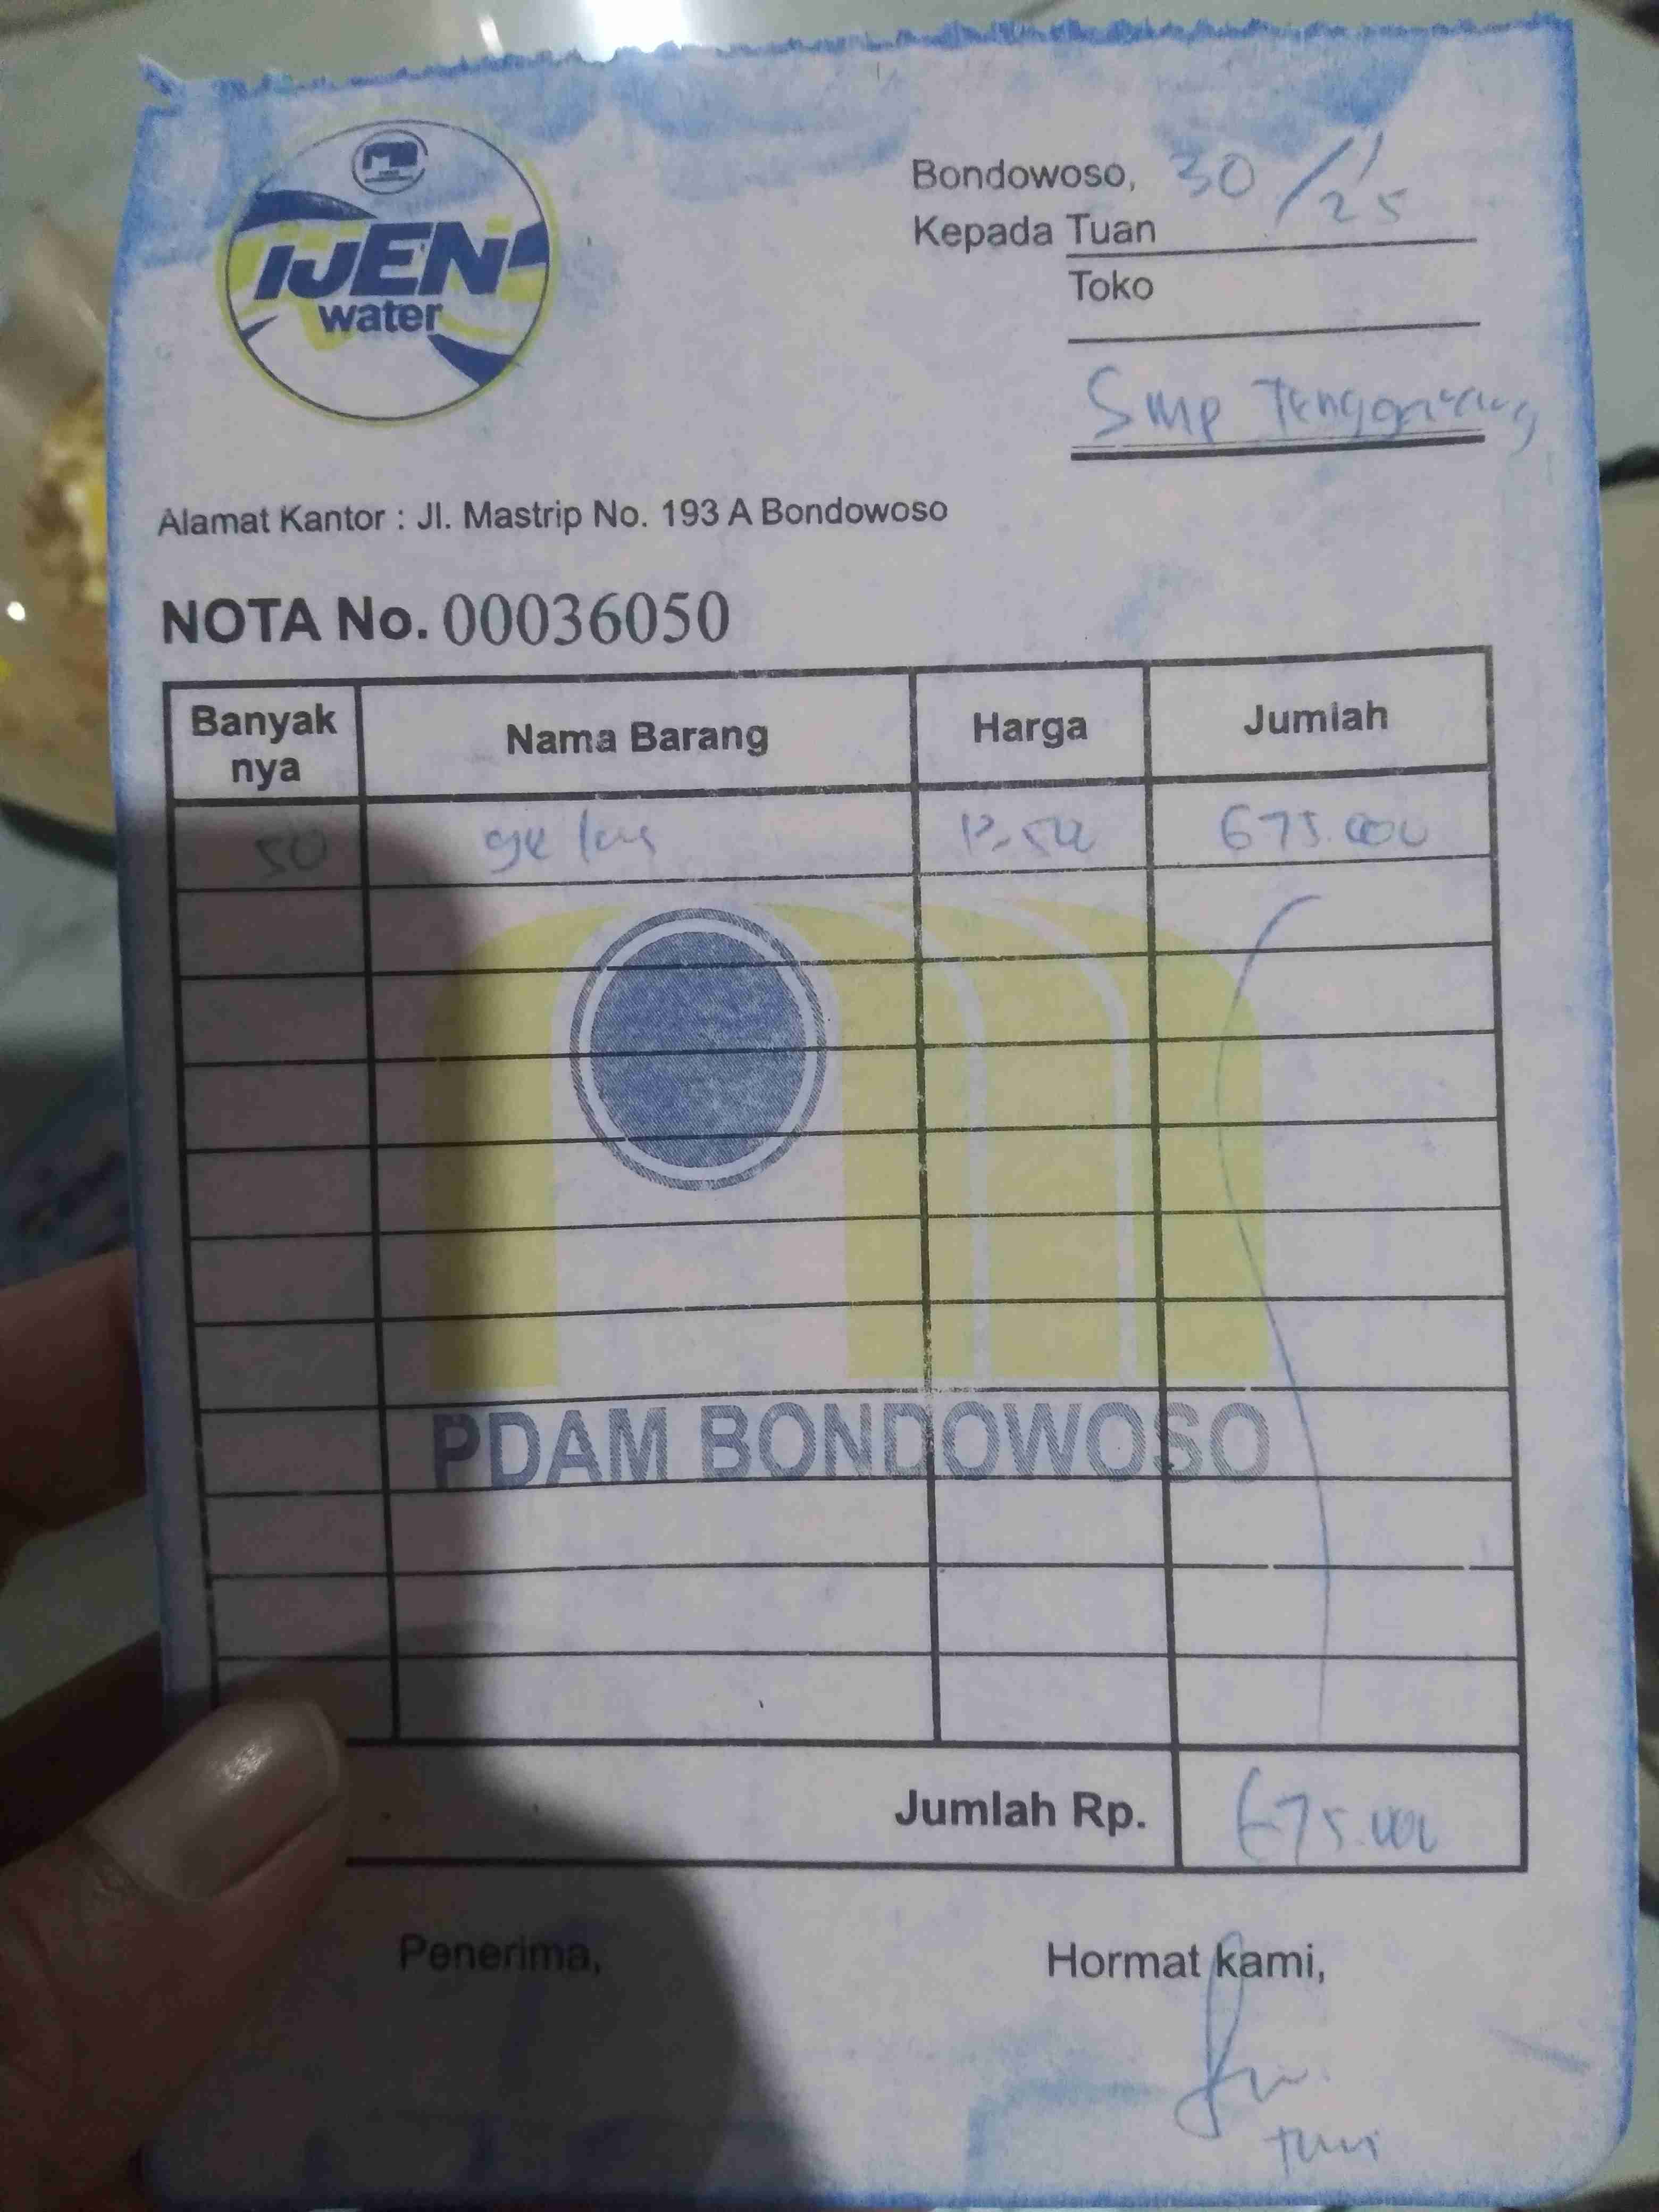 IJEN
water
Bondowoso, 30/11
25
Kepada Tuan
Toko
Smp Tenggarang
Alamat Kantor : Jl. Mastrip No. 193 A Bondowoso
NOTA No. 00036050
Banyak nya Nama Barang Harga Jumlah
50 675.000
PDAM BONDOWOSO
Jumlah Rp. 675.000
Penerima, Hormat kami,